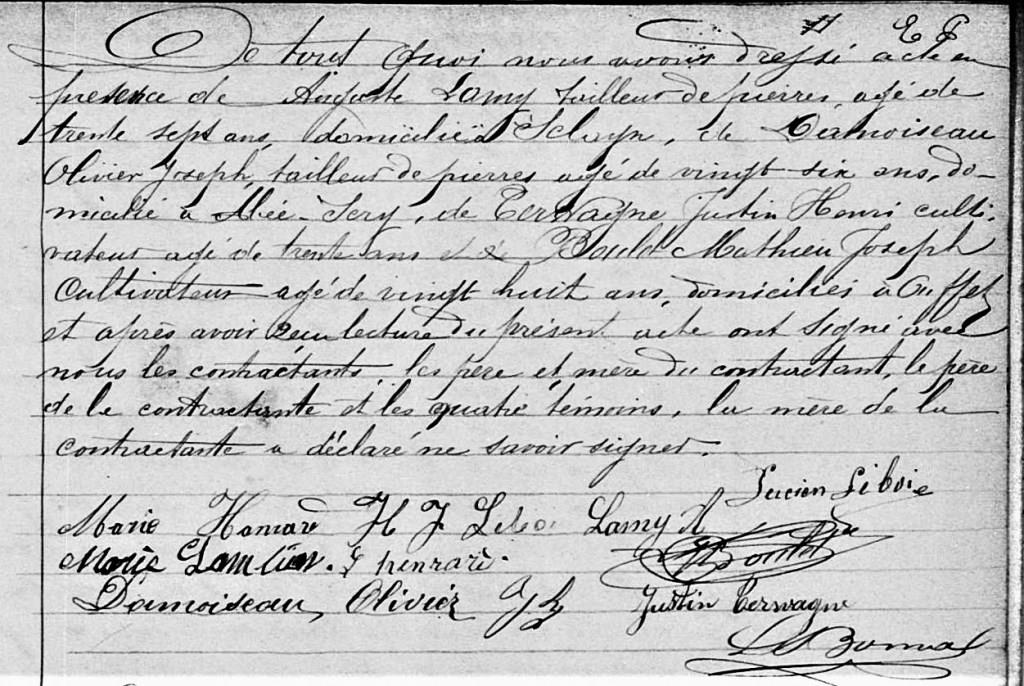 De tout quoi nous avons dressé acte en
présence de Auguste Lamy tailleur de pierres, agé de
trente sept ans, domicilié à Sclayn, de Damoiseau
Olivier Joseph, tailleur de pierres agé de vingt six ans, do-
micilié à Sery, de Tervagne Justin Henri culti-
vateur agé de trente ans et de Bould Mathieu Joseph
Cultivateur agé de vingt huit ans, domiciliés à Ouffet
et après avoir reçu lecture du présent acte ont signé avec
nous les contractants, les père et mère du contractant, le père
de la contractante et les quatre témoins, la mère de la
contractante a déclaré ne savoir signer.
Lucien Libois
Marie Hansard H J Libo Lamy A
Marie Damoiseau, Olivier J Justin Tervagne